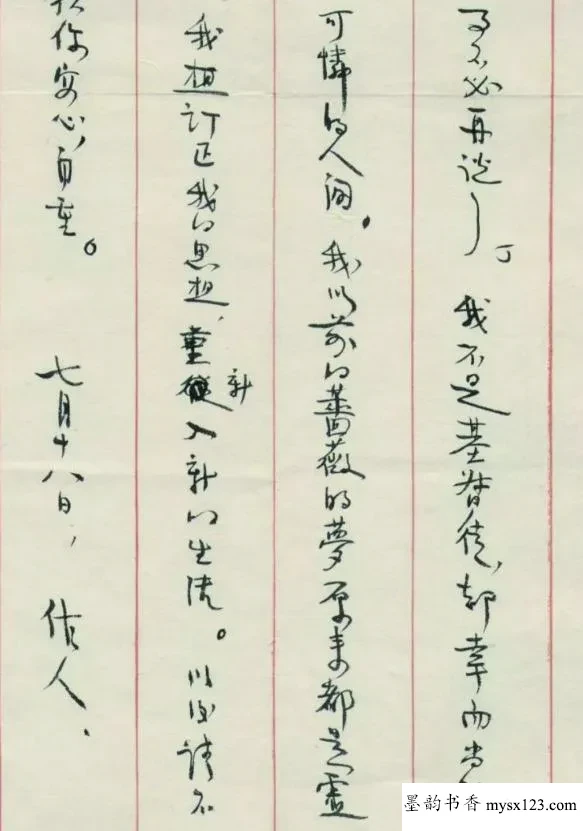 了不必再说了。我不是基督徒，却幸而尚
可怜的人间。我以前的薔薇的夢原来都是虚
我想订正我的思想，重新入新的生活。以后请不
你安心，自重。
七月十八日，作人。
墨韵书香 mysx123.com